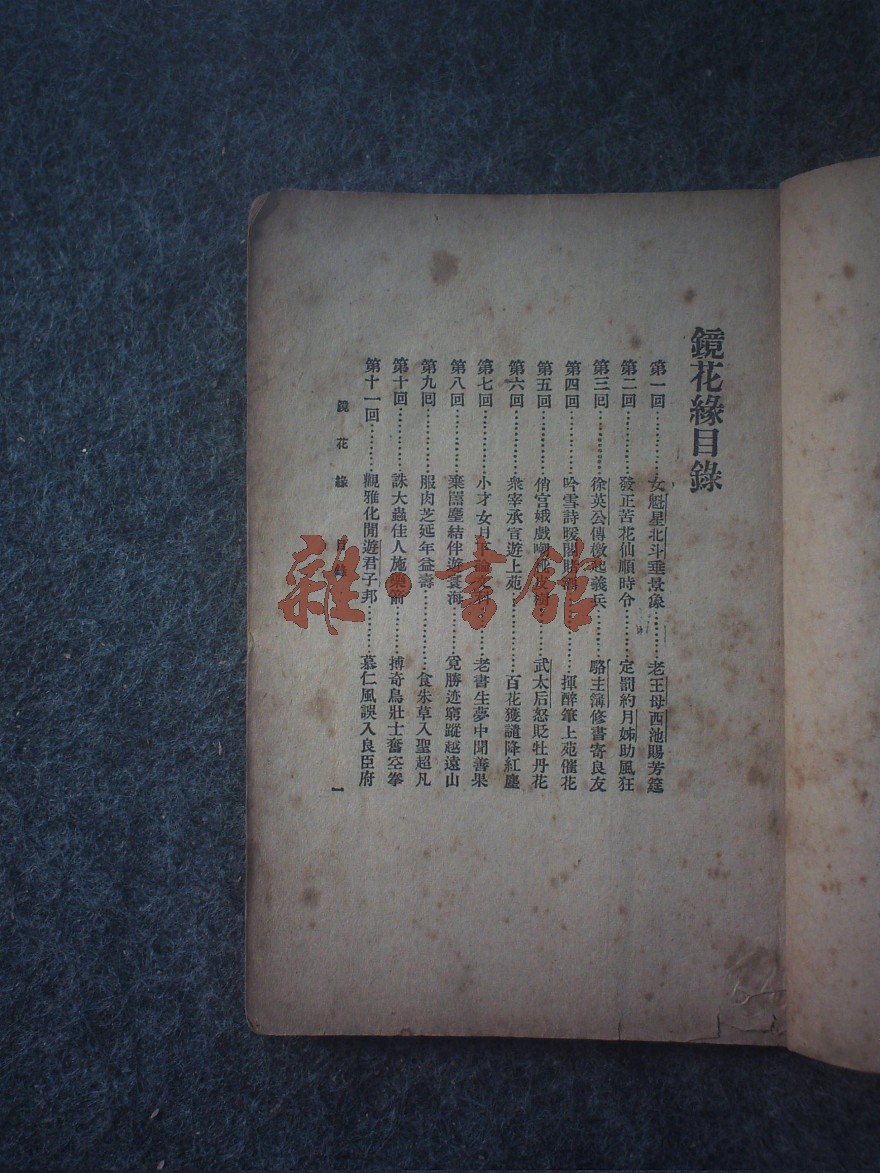 鏡花緣目錄
第一回…………女魁星北斗垂景象………老王母西池賜芳筵
第二回…………發正言花仙順時令………定罰約月姊助風狂
第三回…………徐英公傳檄起義兵………駱主簿修書寄良友
第四回…………吟雪詩暖閣賭酒………揮醉筆上苑催花
第五回…………俏宮娥戲嘲皮………武太后怒貶牡丹花
第六回…………衆宰承宣遊上苑………百花獲譴降紅塵
第七回…………小才女月下論文科………老書生夢中聞善果
第八回…………棄囂塵結伴遊寰海………覓勝迹窮蹤越遠山
第九回…………服肉芝延年益壽………食朱草入聖超凡
第十回…………誅大蟲佳人施藥箭………搏奇鳥壯士奮空拳
第十一回…………觀雅化閒遊君子邦………慕仁風誤入良臣府
鏡花緣 目錄 一
雜·書館